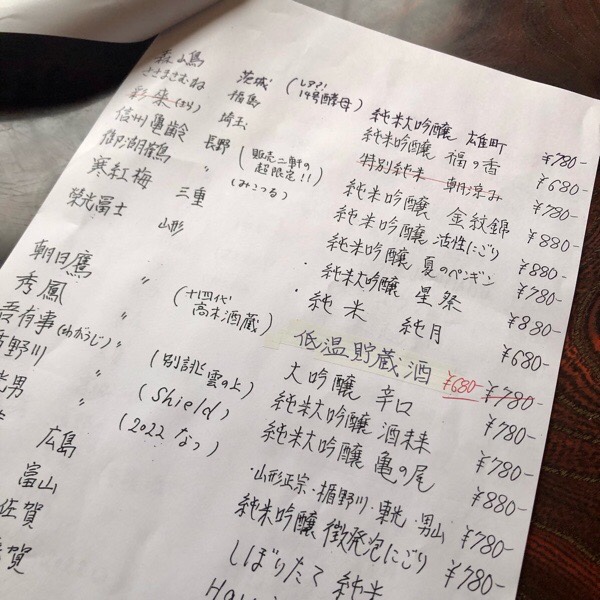 森嶋 茨城 (しぼり? 14号酵母) 純米大吟醸 雄町 ¥780-
ささまさむね 福島 純米吟醸 福の香 ¥680-
彩來(さら) 埼玉 特別純米 朝涼み ¥780-
信州亀齢 長野 (販売二軒の超限定!!) 純米吟醸 金紋錦 ¥880-
御湖鶴 〃 (みこつる) 純米吟醸 活性にごり ¥880-
寒紅梅 三重 純米吟醸 夏のペンギン ¥780-
栄光冨士 山形 ・純米大吟醸 星祭 ¥880-
・純米 純月 ¥680-
朝日鷹 〃 (十四代 高木酒蔵) 低温貯蔵酒 ¥680- ¥780-
秀鳳 〃 大吟醸 辛口 ¥780-
吾有事(わがうじ) 〃 純米大吟醸 酒未来 ¥780-
楯野川 〃 (別誂 雲の上) 純米大吟醸 亀の尾 ¥880-
男 (Shield) ・山形正宗・楯野川・東光・男山 ¥780-
広島 (2022 なつ) 純米吟醸 微発泡にごり ¥780-
富山 しぼりたて 純米
佐賀